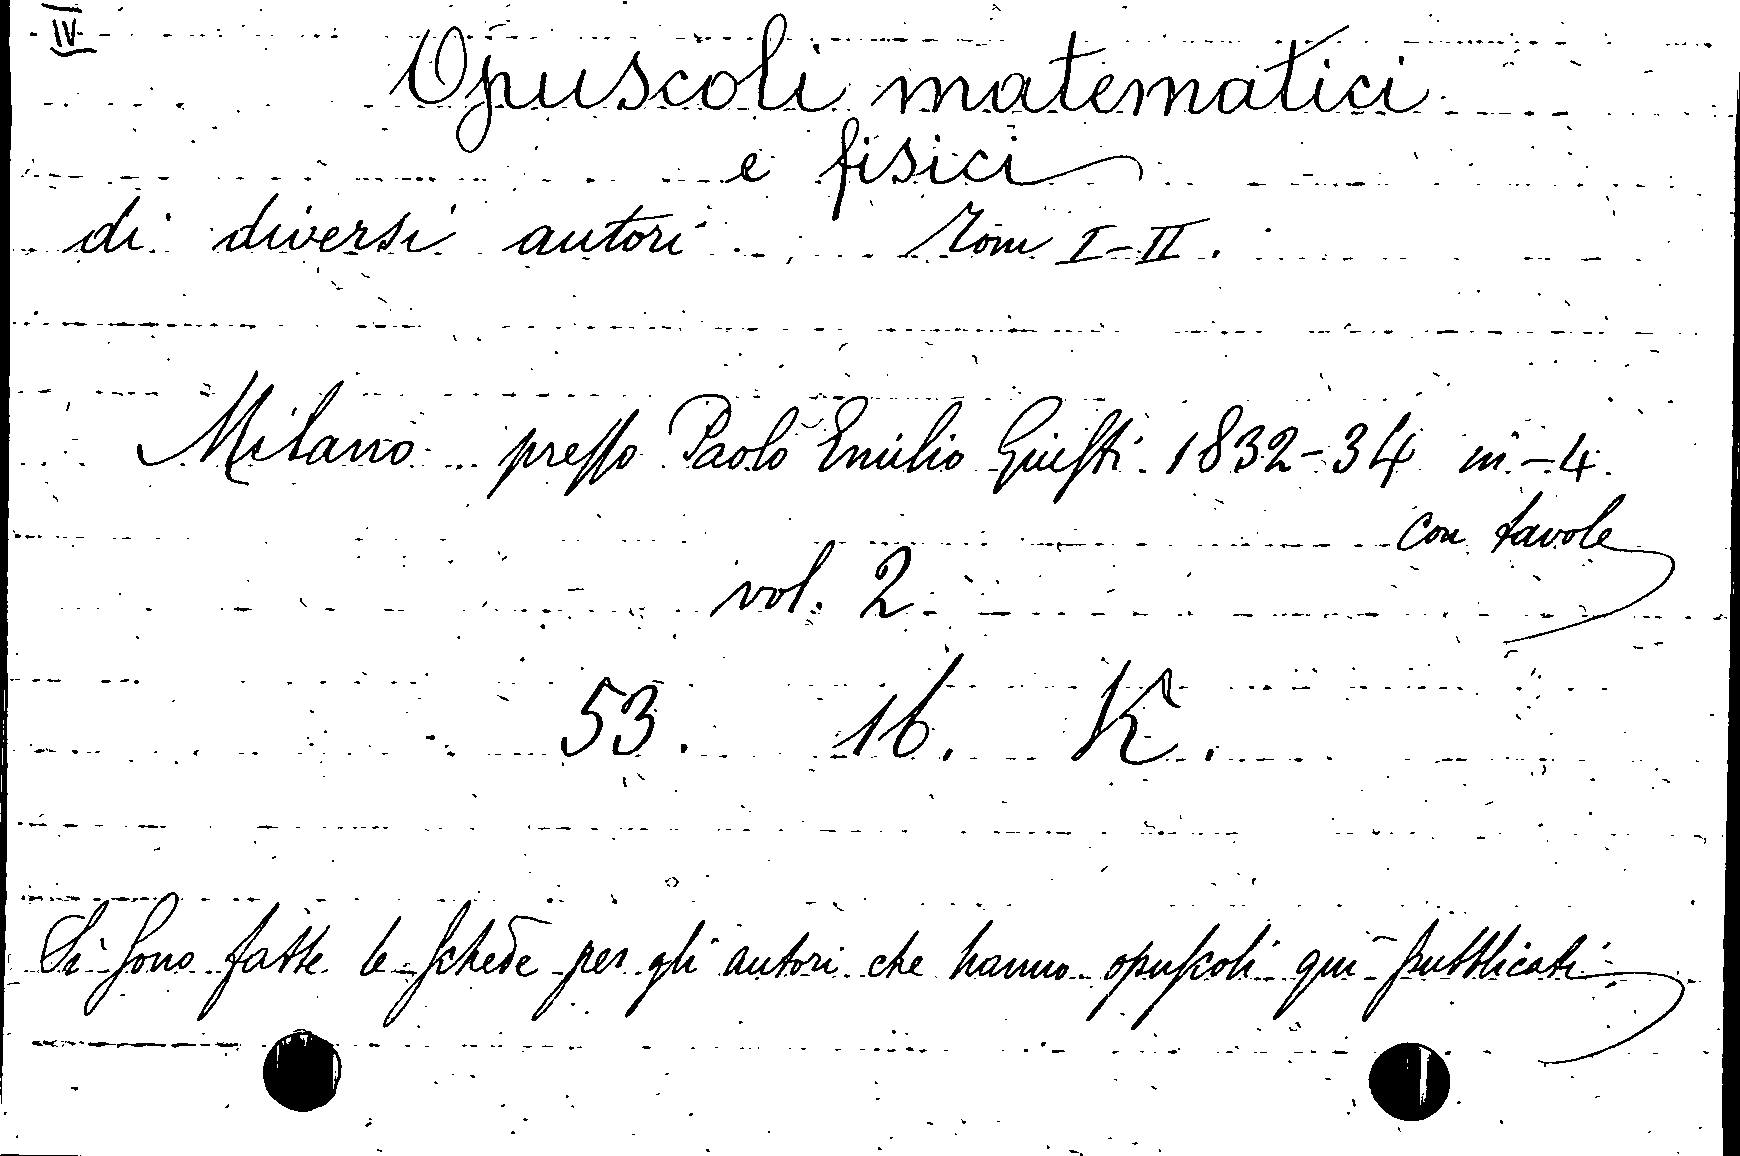 IV
Opuscoli matematici
e fisici
di diversi autori Tom I-II.
Milano presso Paolo Emilio Giusti 1832-34 in-4.
con tavole
vol. 2
53. 16. K.
Si sono fatte le schede per gli autori che hanno opuscoli qui pubblicati